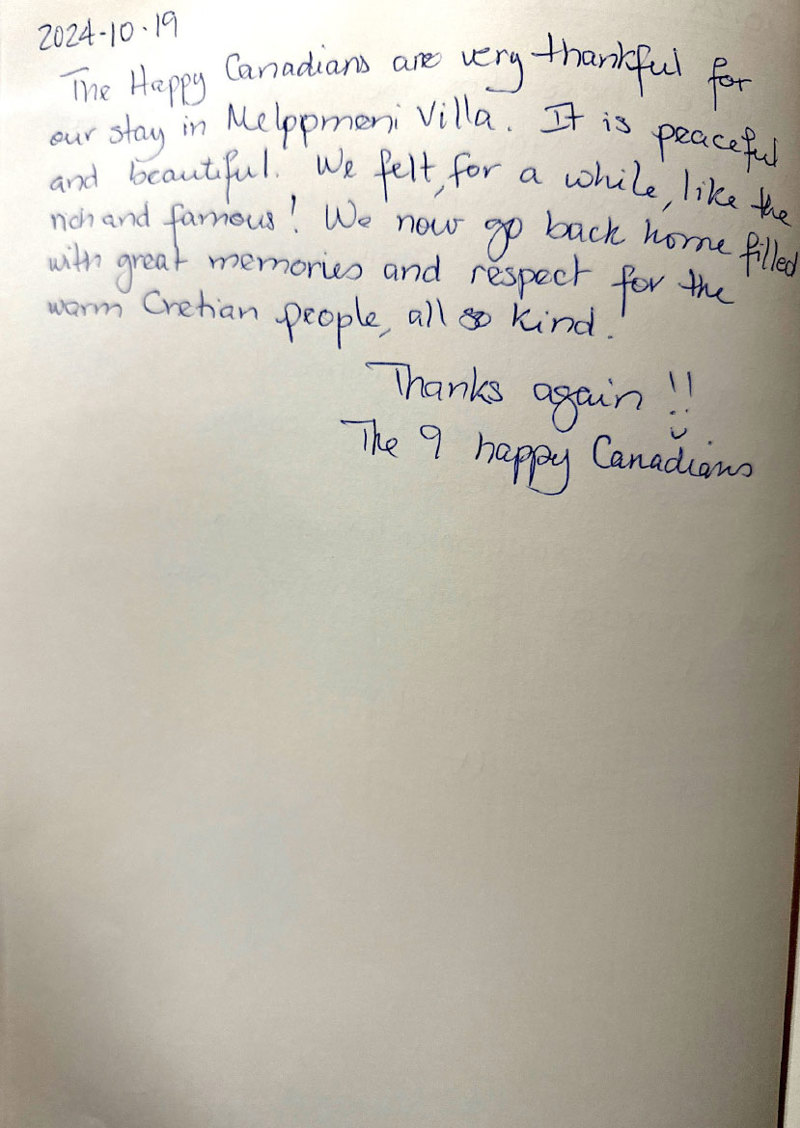 2024-10-19
The Happy Canadians are very thankful for
our stay in Melppmeni Villa. It is peaceful
and beautiful. We felt, for a while, like the
rich and famous! We now go back home filled
with great memories and respect for the
warm Cretian people, all so kind.
Thanks again !!
The 9 happy Canadians